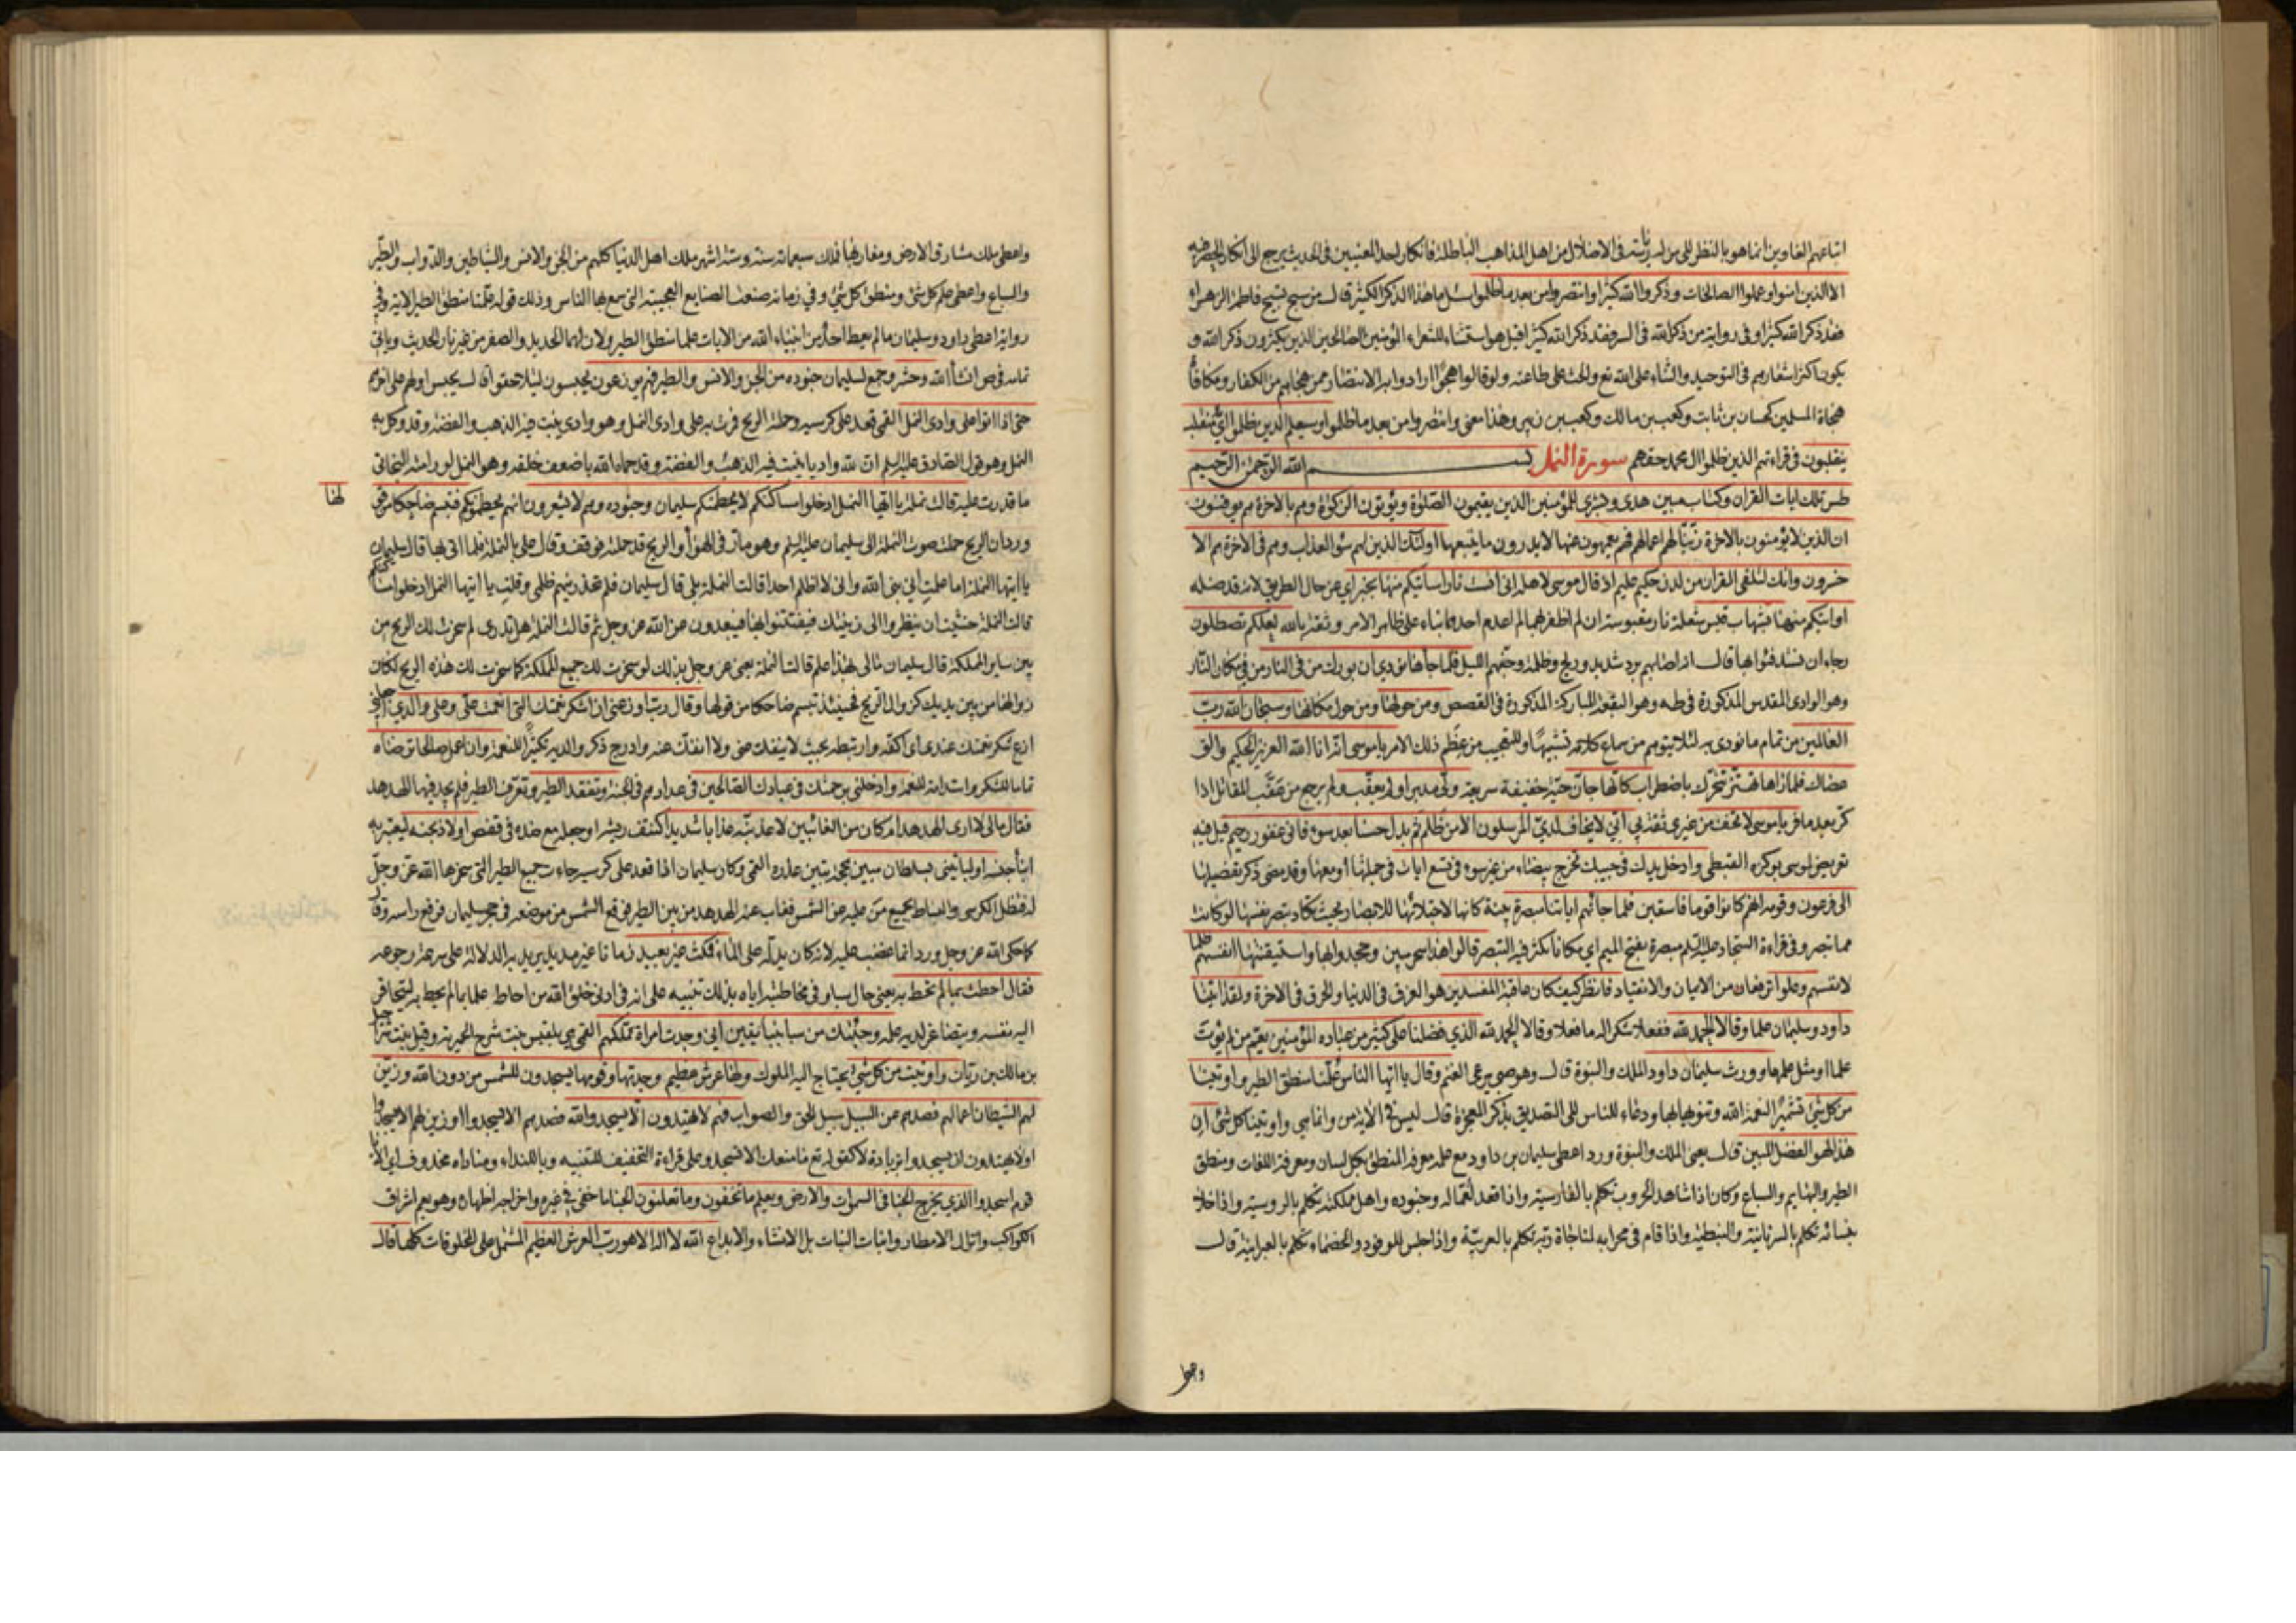 اتباعهم الغاوين انما هو بالنظر الى من له رياسة فى الاضلال من اهل المذاهب الباطلة فانكار احد المعنيين فى الحديث يرجع الى انكار الحصر فيه
الا الذين امنوا وعملوا الصالحات وذكروا الله كثيرا وانتصروا من بعد ما ظلموا سئل ما هذا الذكر الكثير قال من سبح تسبيح فاطمة الزهراء
فقد ذكر الله كثيرا وفى رواية من ذكر الله فى السر فقد ذكر الله كثيرا قيل هو استثناء للشعراء المؤمنين الصالحين الذين يكثرون ذكر الله و
يكون اكثر اشعارهم فى التوحيد والثناء على الله تع والحث على طاعته ولو قالوا هجوا ارادوا به الانتصار ممن هجاهم من الكفار ومكافاة
هجاة المسلمين كحسان بن ثابت وكعب بن مالك وكعب بن زهير وهذا معنى وانتصروا من بعد ما ظلموا وسيعلم الذين ظلموا اى منقلب
ينقلبون فى قراءتهم الذين ظلموا ال محمد حقهم سورة النمل بسم الله الرحمن الرحيم
طس تلك ايات القران وكتاب مبين هدى وبشرى للمؤمنين الذين يقيمون الصلوة ويؤتون الزكوة وهم بالاخرة هم يوقنون
ان الذين لا يؤمنون بالاخرة زينا لهم اعمالهم فهم يعمهون عنها لا يدرون ما يتبعها اولئك الذين لهم سوء العذاب وهم فى الاخرة هم الا
خسرون وانك لتلقى القران من لدن حكيم عليم اذ قال موسى لاهله انى انست نارا ساتيكم منها بخبر اى عن حال الطريق لانه قد ضله
او اتيكم منها بشهاب قبس شعلة نار مقبوسة ان لم اظفر بهما لم اعدم احدهما بناء على ظاهر الامر وثقة بالله لعلكم تصطلون
رجاء ان تستدفئوا بها قال انه اصابهم برد شديد وريح وظلمة وجنهم الليل فلما جاءها نودى ان بورك من فى النار من فى مكان النار
وهو الوادى المقدس المذكورة فى طه وهو البقعة المباركة المذكورة فى القصص ومن حولها ومن حول مكانها وسبحان الله رب
العالمين من تمام ما نودى به لئلا يتوهم من سماع كلامه تشبيها وللتعجب من عظم ذلك الامر يا موسى انه انا الله العزيز الحكيم والق
عصاك فلما راها تهتز تتحرك باضطراب كانها جان حية خفيفة سريعة ولى مدبرا ولم يعقب ولم يرجع من عقب المقاتل اذا
كر بعد ما فر يا موسى لا تخف من غيرى ثقة بى انى لا يخاف لدى المرسلون الا من ظلم ثم بدل حسنا بعد سوء فانى غفور رحيم قيل فيه
تعريض لموسى بوكزه القبطى وادخل يدك فى جيبك تخرج بيضاء من غير سوء فى تسع ايات فى جملتها او معها وقد مضى ذكر تفصيلها
الى فرعون وقومه انهم كانوا قوما فاسقين فلما جائتهم اياتنا مبصرة بينة كانها لاجتلائها للابصار بحيث تكاد تبصر نفسها لو كانت
مما تبصر وفى قراءة السجاد عليه السلم مبصرة بفتح الميم اى مكانا يكثر فيه التبصر قالوا هذا سحر مبين وجحدوا بها واستيقنتها انفسهم ظلما
لانفسهم وعلوا ترفعا عن الايمان والانقياد فانظر كيف كان عاقبة المفسدين هو الغرق فى الدنيا والحرق فى الاخرة ولقد اتينا
داود وسليمان علما وقالا الحمد لله ففعلا شكرا له ما فعلا وقالا الحمد لله الذى فضلنا على كثير من عباده المؤمنين يعم من لم يؤت
علما او مثل علمهما وورث سليمان داود الملك والنبوة قال وهو صبى يرعى الغنم وقال يا ايها الناس علمنا منطق الطير واوتينا
من كل شئ تشهيرا لنعمة الله وتنويها بها ودعاء للناس الى التصديق بذكر المعجزة قال ليس فى الاية من وانما هى واوتينا كل شئ ان
هذا لهو الفضل المبين قال يعنى الملك والنبوة ورد اعطى سليمان بن داود مع علمه معرفة المنطق بكل لسان ومعرفة اللغات ومنطق
الطير والبهايم والسباع وكان اذا شاهد الحروب تكلم بالفارسية واذا قعد لعماله وجنوده واهل مملكته تكلم بالرومية واذا خلا
بنسائه تكلم بالسريانية والنبطية واذا قام فى محرابه لمناجاة ربه تكلم بالعربية واذا جلس للوفود والخصماء تكلم بالعبرانية قال
واعطى
واعطى ملك مشارق الارض ومغاربها فملك سبعمائة سنة وستة اشهر ملك اهل الدنيا كلهم من الجن والانس والشياطين والدواب والطير
والسباع واعطى علم كل شئ ومنطق كل شئ وفى زمانه صنعت الصنايع العجيبة التى سمع بها الناس وذلك قوله علمنا منطق الطير الاية وفى
رواية اعطى داود وسليمان ما لم يعط احد من انبياء الله من الايات علما منطق الطير والان لهما الحديد والصفر من غير نار الحديث وياتى
تمامه فى ص انشاء الله وحشر وجمع لسليمان جنوده من الجن والانس والطير فهم يوزعون يحبسون ليتلاحقوا قال يحبس اولهم على اخرهم
حتى اذا اتوا على وادى النمل القمى قعد على كرسيه وحملته الريح فمرت به على وادى النمل وهو وادى ينبت فيه الذهب والفضة وقد وكل به
النمل وهو قول الصادق عليه السلم ان لله واديا ينبت فيه الذهب والفضة وقد حماه الله باضعف خلقه وهو النمل لو رامته البخاتى
ما قدرت عليه قالت نملة يا ايها النمل ادخلوا مساكنكم لا يحطمنكم سليمان وجنوده وهم لا يشعرون انهم يحطمونكم فتبسم ضاحكا من قو
لها
ورد ان الريح حملت صوت النملة الى سليمان عليه السلم وهو مار فى الهواء والريح قد حملته فوقف وقال على بالنملة فلما اتى بها قال سليمان
يا ايتها النملة اما علمت انى نبى الله وانى لا اظلم احدا قالت النملة بلى قال سليمان فلم حذرتهم ظلمى وقلت يا ايها النمل ادخلوا مساكنكم
قالت النملة خشيت ان ينظروا الى زينتك فيفتتنوا بها فيبعدون عن الله عز وجل ثم قالت النملة هل تدرى لم سخرت لك الريح من
بين ساير المملكة قال سليمان مالى بهذا علم قالت النملة يعنى عز وجل بذلك لو سخرت لك جميع المملكة كما سخرت لك هذه الريح لكان
زوالها من بين يديك كزوال الريح فحينئذ تبسم ضاحكا من قولها وقال رب اوزعنى ان اشكر نعمتك التى انعمت على وعلى والدى اجعلنى
ازع شكر نعمتك عندى اى اكفه وارتبطه بحيث لا ينفلت عنى ولا انفك عنه وادرج ذكر والديه تكثيرا للنعمة وان اعمل صالحا ترضاه
تماما للشكر واستدامة للنعمة وادخلنى برحمتك فى عبادك الصالحين فى عدادهم فى الجنة وتفقد الطير وتعرف الطير فلم يجد فيها الهدهد
فقال مالى لا ارى الهدهد ام كان من الغائبين لاعذبنه عذابا شديدا كنتف ريشه او جعله مع ضده فى قفص او لاذبحنه ليعتبر به
ابناء جنسه او ليأتينى بسلطان مبين بحجة تبين عذره القمى وكان سليمان اذا قعد على كرسيه جاءت جميع الطير التى سخرها الله عز وجل
له فتظل الكرسى والبساط بجميع من عليه من الشمس فغاب عنه الهدهد من بين الطير فوقع الشمس من موضعه فى حجر سليمان فرفع راسه وقال
كما حكى الله عز وجل ورد انما غضب عليه لانه كان يدله على الماء فمكث غير بعيد زمانا غير مديد يريد به الدلالة على سرعة رجوعه
فقال احطت بما لم تحط به يعنى حال سبا وفى مخاطبته اياه بذلك تنبيه على انه فى ادنى خلق الله من احاط علما بما لم يحط به ليتحاقر
اليه نفسه ويتصاغر لديه علمه وجئتك من سبا بنبا يقين انى وجدت امراة تملكهم القمى هى بلقيس بنت شرح الحميرية وقيل بنت شراحيل
بن مالك بن ريان واوتيت من كل شئ يحتاج اليه الملوك ولها عرش عظيم وجدتها وقومها يسجدون للشمس من دون الله وزين
لهم الشيطان اعمالهم فصدهم عن السبيل سبيل الحق والصواب فهم لا يهتدون الا يسجدوا لله فصدهم الا يسجدوا او زين لهم الا يسجدوا
او لا يهتدون ان يسجدوا بزيادة لا كقوله تع ما منعك الا تسجد وعلى قراءة التخفيف للتنبيه ويا للنداء ومناداه محذوف اى الا يا
قوم اسجدوا الذى يخرج الخبا فى السموات والارض ويعلم ما تخفون وما تعلنون الخبا ما خفى فى غيره واخراجه اظهاره وهو يعم اشراق
الكواكب وانزال الامطار وانبات النبات بل الانشاء والابداع الله لا اله الا هو رب العرش العظيم المشتمل على المخلوقات كلها قال